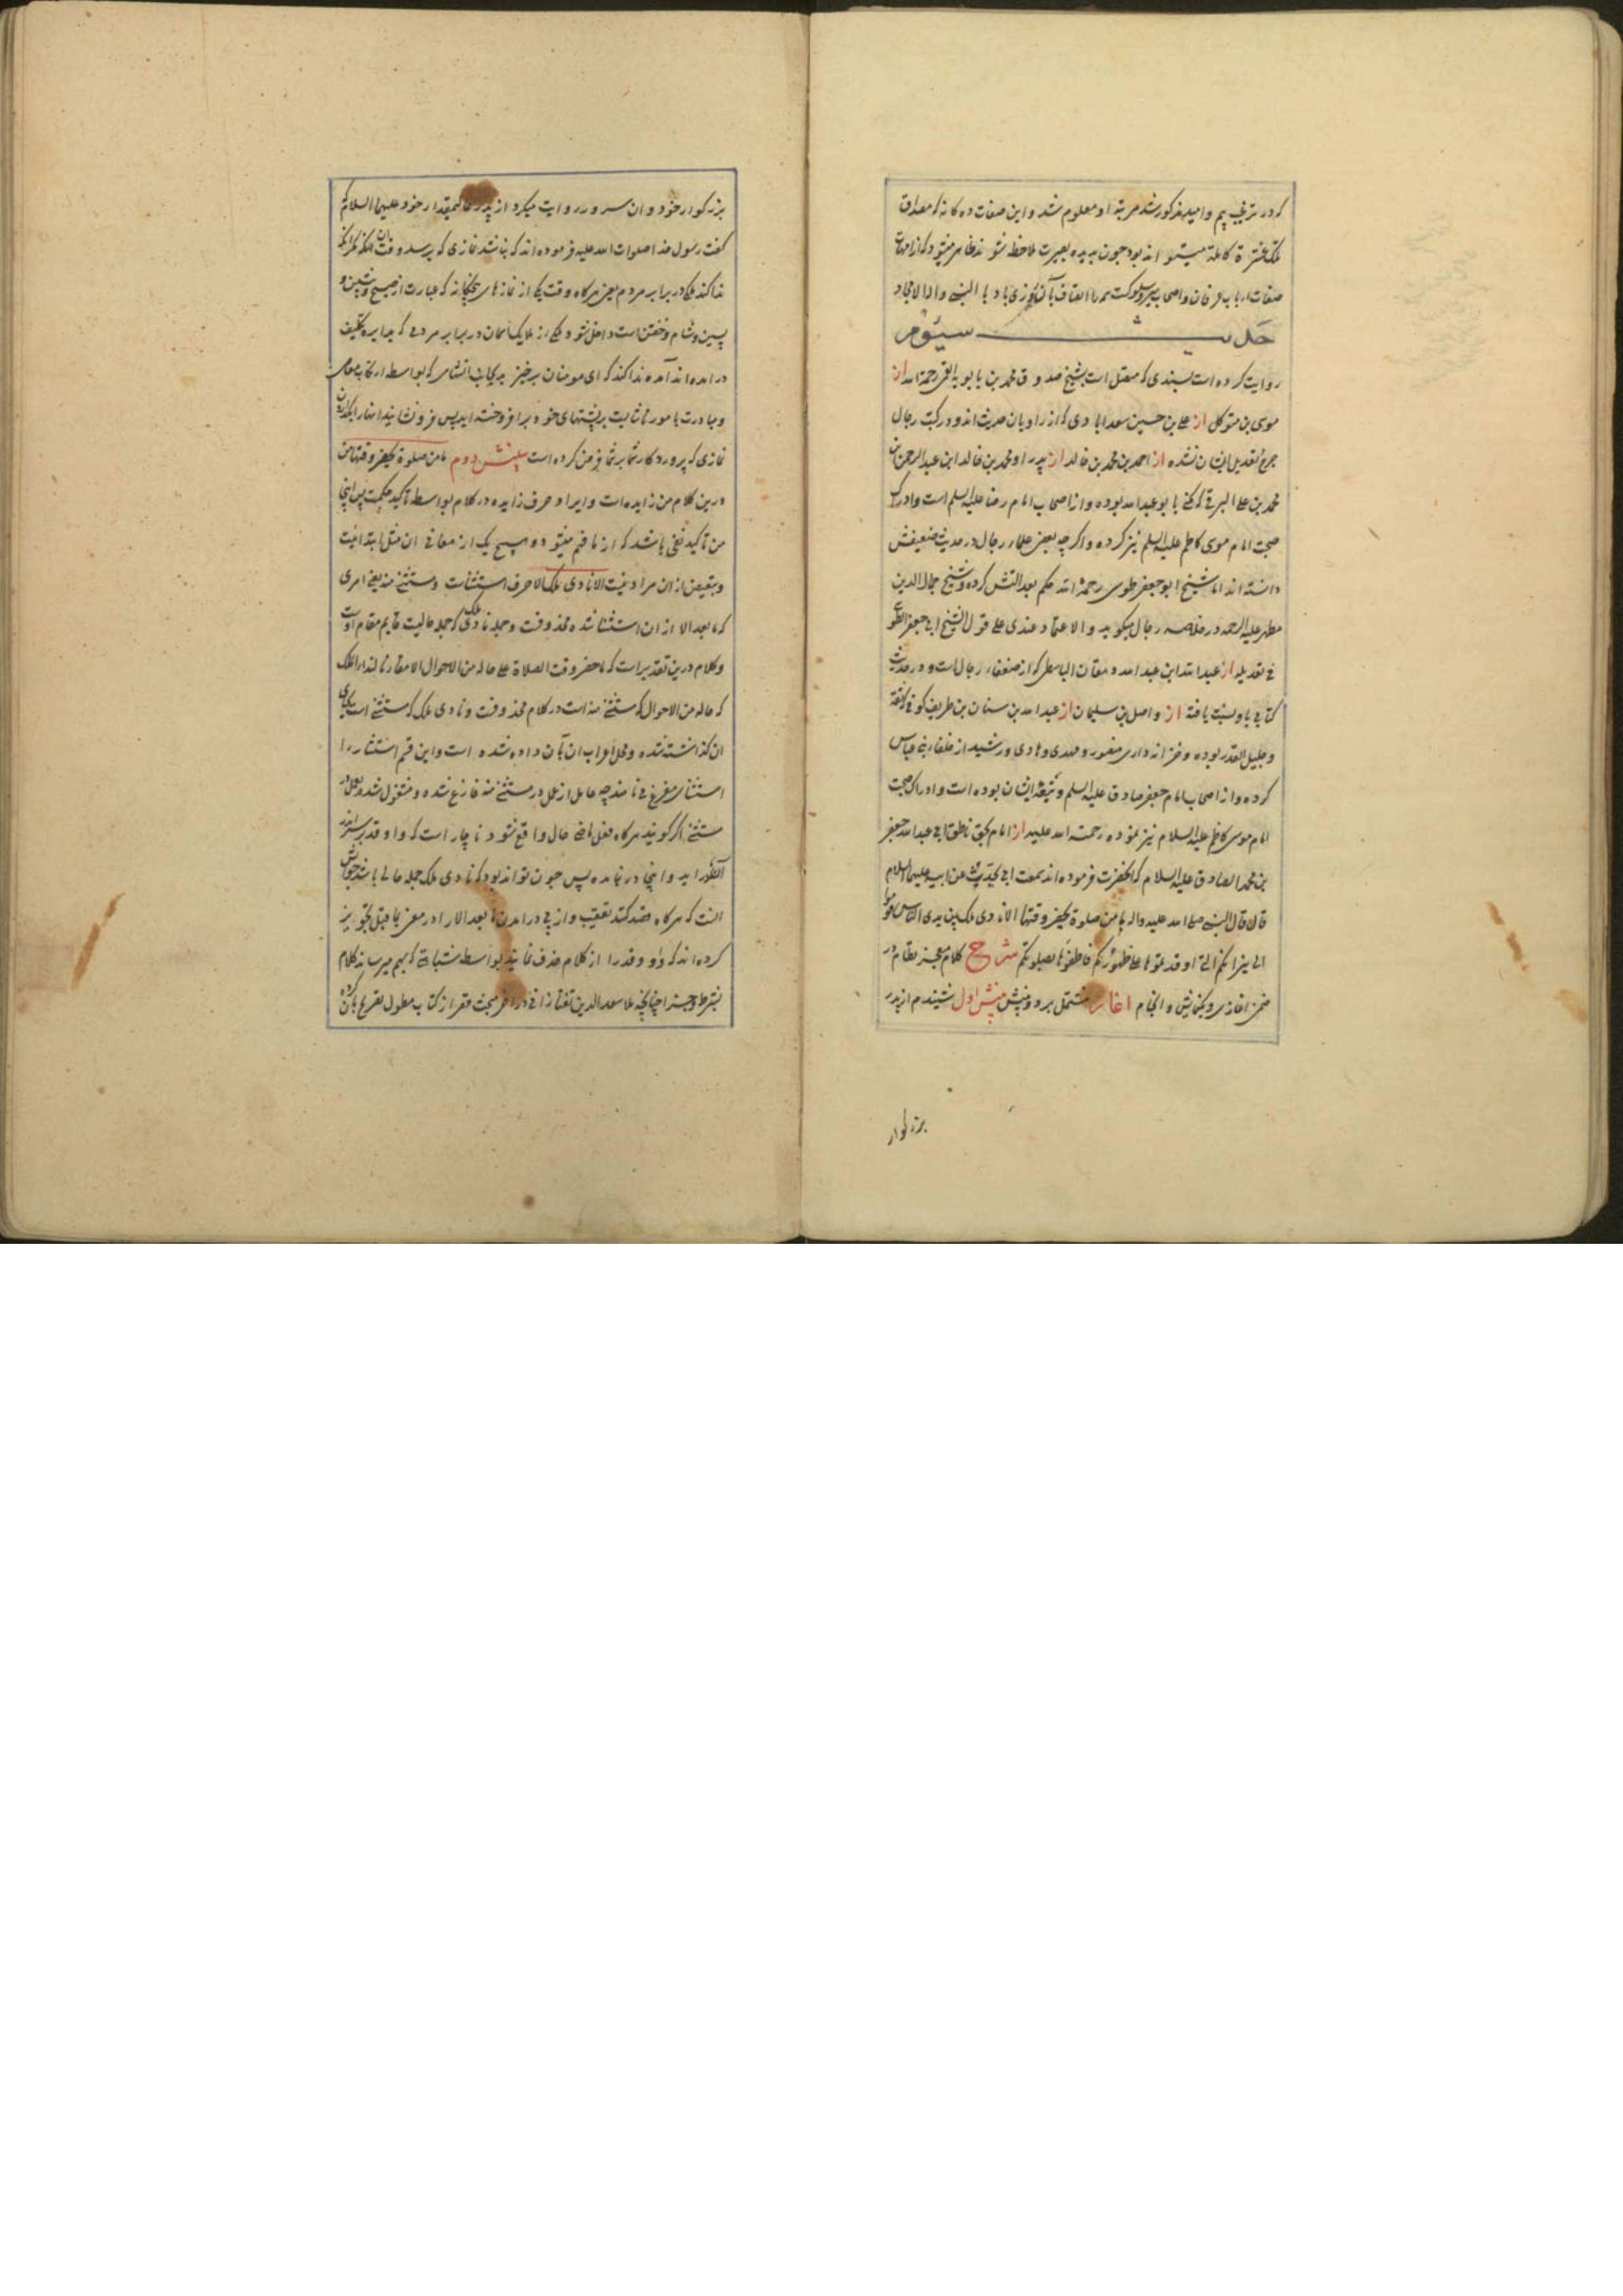 که در ترغیب پیم و امید مذکور شد مرتبه او معلوم شد و این صفات ده کانه که مصداق
تلک عشرة کامله میتواند بود چون بدیده بصیرت ملاحظه شود ظاهر میشود که از امهات
صفات ارباب عرفان و اصحاب سیر و سلوکست باد با النبی و اله الامجاد
حدیث سیوم
روایت کرده است بسندی که متصل است بشیخ صدوق محمد بن بابویه القمی رحمة الله از
موسی بن متوکل از علی بن حسین سعدابادی که از راویان حدیث اند و در کتب رجال
جرح و تعدیل ایشان نشده از احمد بن محمد بن خالد از پدر او محمد بن خالد ابن عبد الرحمن بن
محمد بن علی البرقی که مکنی بابو عبد الله بوده و از اصحاب امام رضا علیه السلم است و ادراک
صحبت امام موسی کاظم علیه السلم نیز کرده و اکرچه بعضی علماء رجال در حدیث ضعیفش
دانسته اند اما شیخ ابو جعفر طوسی رحمة الله حکم بعدالتش کرده و شیخ جمال الدین
مطهر علیه الرحمه در خلاصه رجال میکوید و الاعتماد عندی علی قول الشیخ ابی جعفر الطوسی
فی تعدیله از عبد الله ابن عبد الله دهقان الواسطی که از ضعفاء رجال است و در حدیث
کتابی باو نسبت یافته از واصل بن سلیمان از عبد الله بن سنان بن طریف کوفی که ثقه
و جلیل القدر بوده و خزانه داری منصور و مهدی و هادی و رشید از خلفاء بنی عباس
کرده و از اصحاب امام جعفر صادق علیه السلم و شیعه ایشان بوده است و ادراک صحبت
امام موسی کاظم علیه السلام نیز نموده رحمت الله علیه از امام بحق ناطق ابی عبد الله جعفر
بن محمد الصادق علیه السلام که انحضرت فرموده اند سمعت ابی یحدث عن ابیه علیهما السلام
قال قال النبی صلی الله علیه واله ما من صلوة یحضر وقتها الا نادی ملک بین یدی الناس قوموا
الی نیرانکم التی اوقدتموها علی ظهورکم فاطفؤها بصلوتکم شرح کلام معجز نظام در
ضمن اغازی و نمایش و انجام اغاز مشتمل بر دو بینش بینش اول شنیدم از پدر
بزرکوار
بزرکوار خود و ان سرور روایت میکرد از پدر عالیمقدار خود علیهما السلام که
کفت رسول خدا صلوات الله علیه فرموده اند که نباشد نمازی که برسد وقت ان مکر انکه
ندا کند ملکی در برابر مردم یعنی هرکاه وقت یکی از نمازهای پنجکانه که عبارت از صبح و پیشین و
پسین و شام و خفتن است داخل شود ملکی از ملایک اسمان در برابر مردمی که بدایره تکلیف
در امده اند آمده ندا کند که ای مومنان برخیزید بجانب اتشهای که بواسطه ارتکاب معاصی
و مبادرت بامور ناشایست برپشتهای خود برافروخته اید پس فرونشانید انها را بکذاردن
نمازی که پروردکار شما بر شما فرض کرده است بینش دوم ما من صلوة یحضر وقتها من
درین کلام من زایده است و ایراد حرف زایده در کلام بواسطه تاکید حکمست پس اینجا
من تاکید نفی باشد که از ما فهم میشود و هیچ یک از معانی ان مثل ابتدائیت
و تبعیض از ان مراد نیست الا نادی ملک الا حرف استثناست و مستثنی منه یعنی امری
که ما بعد الا از ان استثنا شده محذوفست و جمله نادی ملک که جمله حالیست قایم مقام اوست
و کلام درین تقدیر است که ما حضر وقت الصلاة علی حاله من الاحوال الا مقارنا لنداء الملک
که حاله من الاحوال که مستثنی منه است در کلام محذوفست و نادی ملک که مستثنی است بجای
ان کذاشته شده و محل اعراب ان بآن داده شده است و این قسم استثنا را
استثنای مفرغ می نامند چه عامل از عمل در مستثنی منه فارغ شده و مشغول شده بعمل در
مستثنی اکر کویند هرکاه فعل ماضی حال واقع شود ناچار است که واو و قد بر سر
و اینجا در نیامده پس چون تواند بود که نادی ملک جمله حالی باشد جوابش
انست که هرکاه قصد کنند تعقیب و از پی در امدن ما بعد الا را در معنی بما قبل تجویز
کرده اند که واو و قد را از کلام حذف نمایند بواسطه شباهتی که بهم میرساند کلام
بشرط و جزا چنانچه ملا سعد الدین تفتازانی در اخر مبحث قصر از کتاب مطول تصریح بان کرده